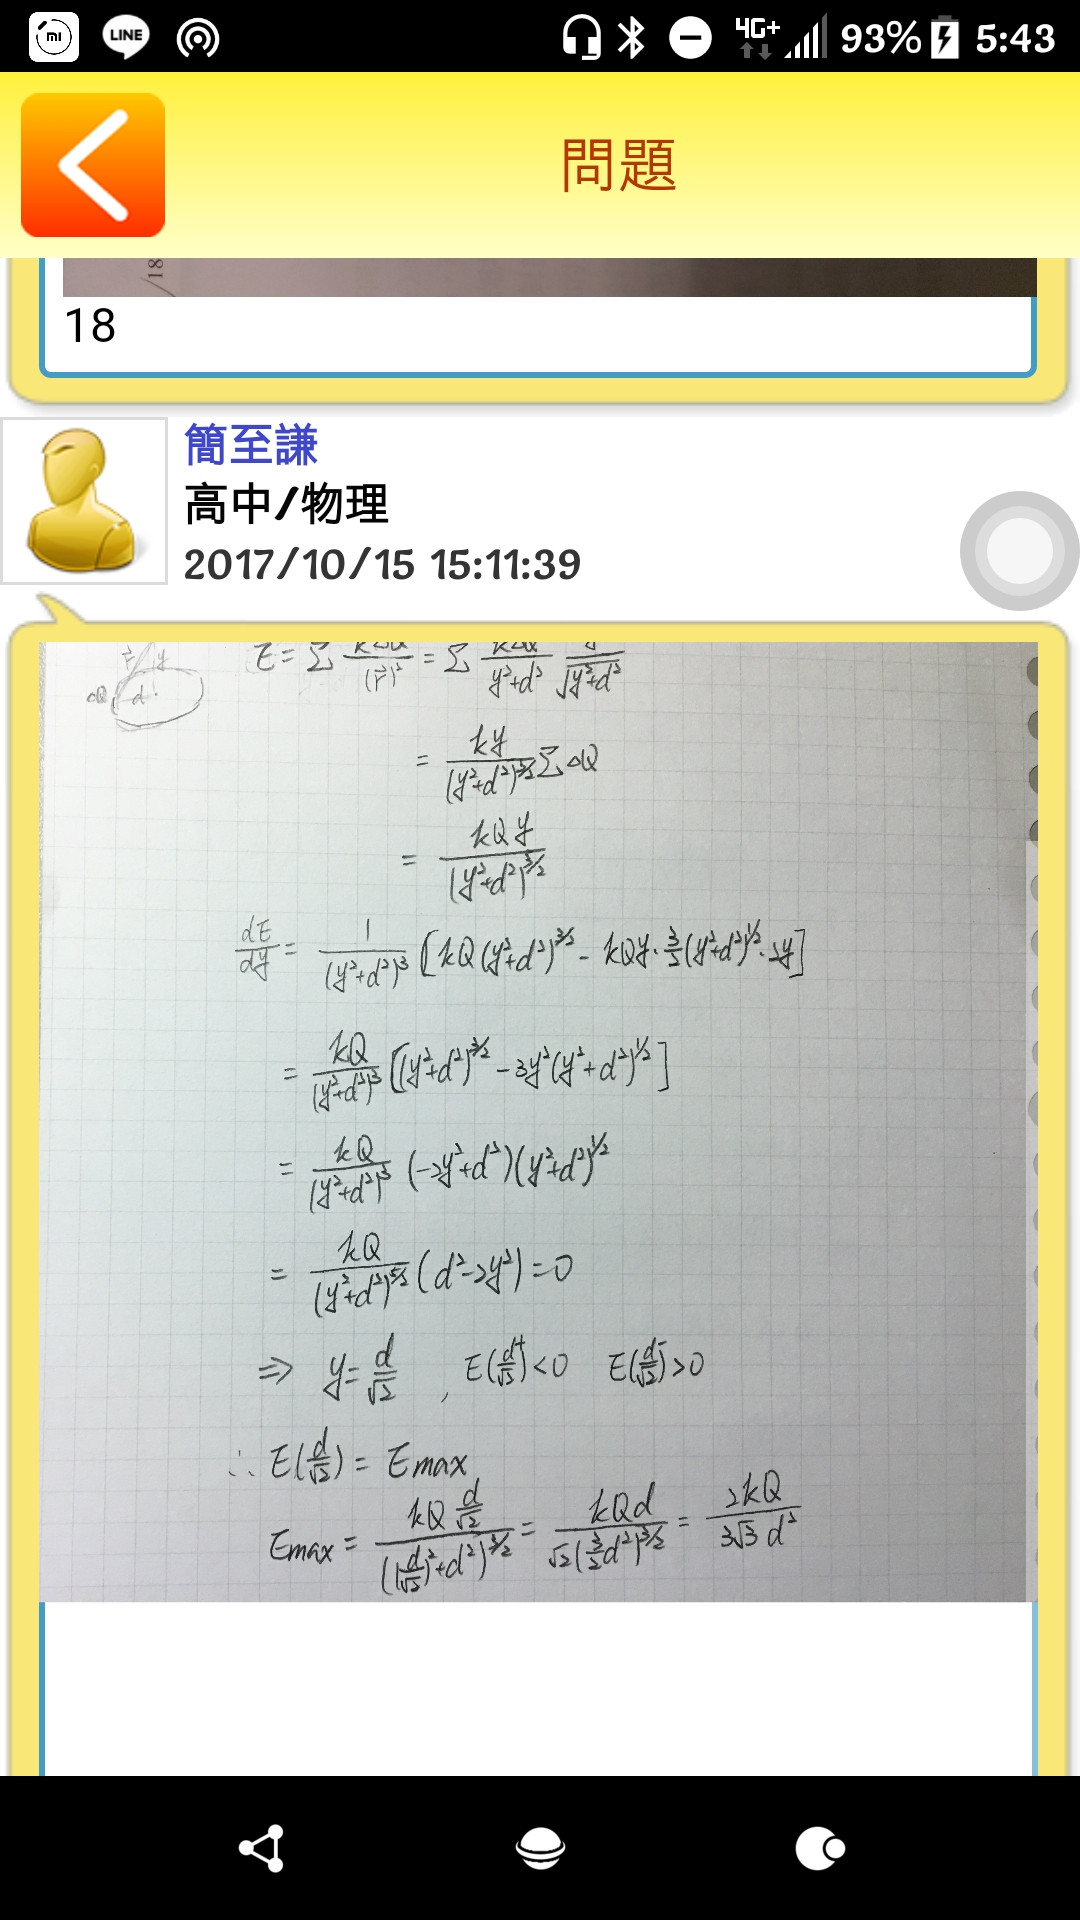 mi LINE 4G+ 93% 5:43
問題
18
18
簡至謙
高中/物理
2017/10/15 15:11:39
r⃗ y
ΔQ d
E = Σ kΔQ/(r⃗)² = Σ kΔQ/(y²+d²) y/√(y²+d²)
= ky/(y²+d²)^(3/2) Σ ΔQ
= kQy/(y²+d²)^(3/2)
dE/dy = 1/(y²+d²)³ [kQ(y²+d²)^(3/2) - kQy·3/2(y²+d²)^(1/2)·2y]
= kQ/(y²+d²)³ [(y²+d²)^(3/2) - 3y²(y²+d²)^(1/2)]
= kQ/(y²+d²)³ (-2y²+d²)(y²+d²)^(1/2)
= kQ/(y²+d²)^(5/2) (d²-2y²) = 0
⇒ y = d/√2 , E(d⁺/√2) < 0 E(d⁻/√2) > 0
∴ E(d/√2) = Emax
Emax = kQ d/√2/((d/√2)²+d²)^(3/2) = kQd/√2(3/2 d²)^(3/2) = 2kQ/3√3 d²